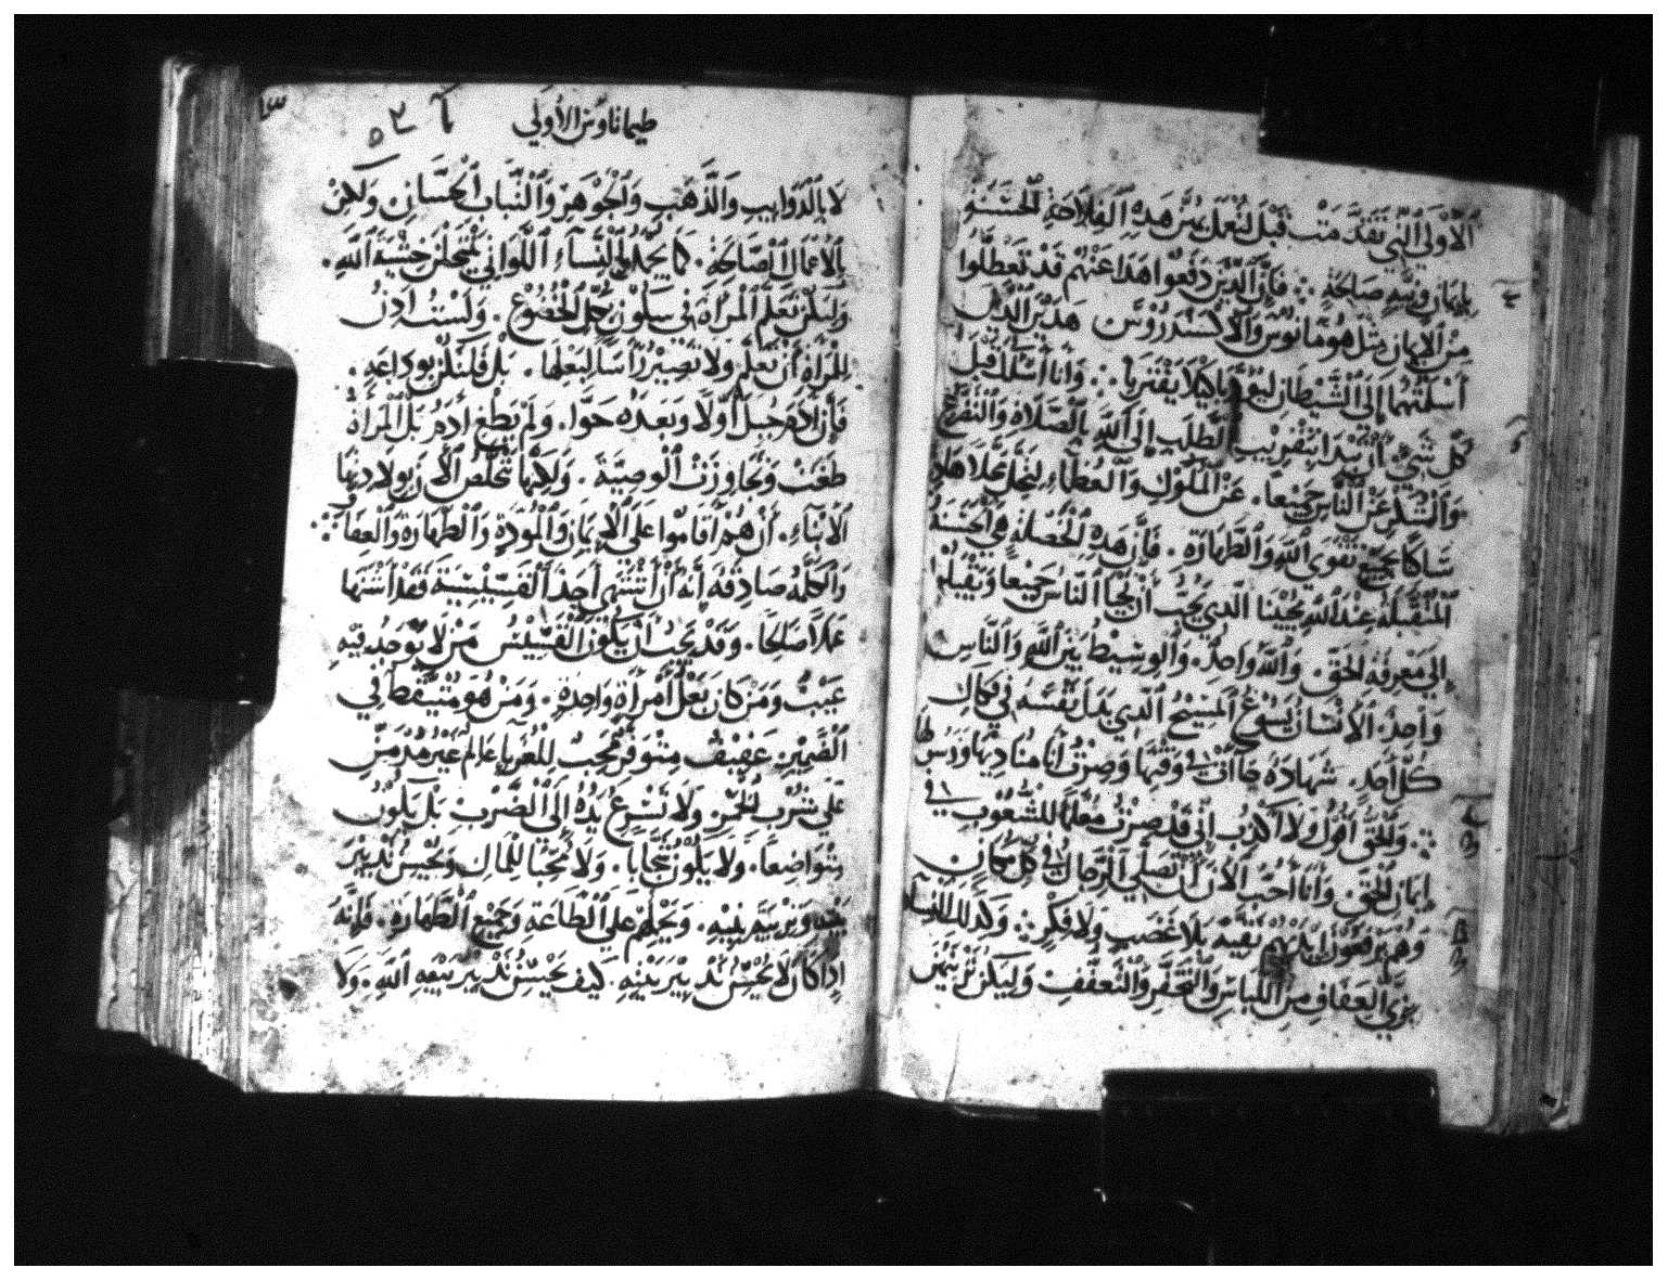 الأولي التي تقدمت قبل لتعمل بهن هذه الفلاحة الحسنة
بايمان ونية صالحة ∴ فإن الذين دفعوا هذا عنهم قد تعطلوا
من الإيمان مثل هومانوس والاكسندروس هذين الذين
أسلمتهما إلى الشيطان ليؤدبا كيلا يفتريا ∴ وأنا أسلك قبل
كل شيء أن تبدا بتقريب الطلب إلى الله بالصلاة والتضرع
والشكر عن الناس جميعا . عن الملوك والعظماء لنحل محلا هاديا
ساكنا بجميع تقوى الله والطهارة . فإن هذه الخصلة هي الحسنة
المتقبلة عند الله محيينا الذي يحب أن يحيا الناس جميعا ويقبلوا
إلي معرفة الحق . والله واحد . والوسيط بين الله والناس
واحد . الانسان يسوع المسيح الذي بذل نفسه في فكاك
كل أحد . شهادة جاأت في وقتها وصرت أنا مناديها ورسولها
∴ والحق أقول ولا أكذب اني قد صرت معلما للشعوب في
إيمان الحق وأنا أحب الآن أن تصلي الرجال في كل مكان
وهم يرفعون ايديهم نقية بلا غضب ولا فكر ∴ وكذلك النساء
بزي العفاف من اللباس والتخفر والتعفف وليكن تزينهن
طيماتاوس الأولي
لا بالذوايب والذهب والجوهر والثياب الحسان ولكن
بالأعمال الصالحة . كما يجمل بالنساء اللواتي ينتحلن خشية الله .
ولتكن تعلم المرأة في سكون بكل الخضوع . ولست اذن
للمرأة أن تعلم ولا تصير رأسا لبعلها . بل فلتكن بوداعة .
فإن آدم جبل أولا وبعده حوا . ولم يطغ ادم بل المرأة
طغت وتجاوزت الوصية . ولكنها تخلص الآن بولادتها
الأبناء . أن هم أقاموا على الإيمان والمودة والطهارة والعفاف ∴
والكلمة صادقة أنه أن أشتهي أحد القسيسية فقد اشتها
عملا صالحا . وقد يجب أن يكون القسيس من لا يوجد فيه
عيب ومن كان بعل أمرأة واحدة . ومن هو متيقظ في
الضمير عفيف متوقر محب للغربا عالم غير مدمن
على شرب الخمر ولا تسرع يده إلى الضرب بل يكون
متواضعا . ولا يكون محابا . ولا محبا للمال ويحسن تدبير
بيته وتربية بنيه . ويحملهم على الطاعة وجميع الطهارة . فإنه
إذا كان لا يحسن تدبير بيته . كيف يحسن تدبير بيعة الله . ولا